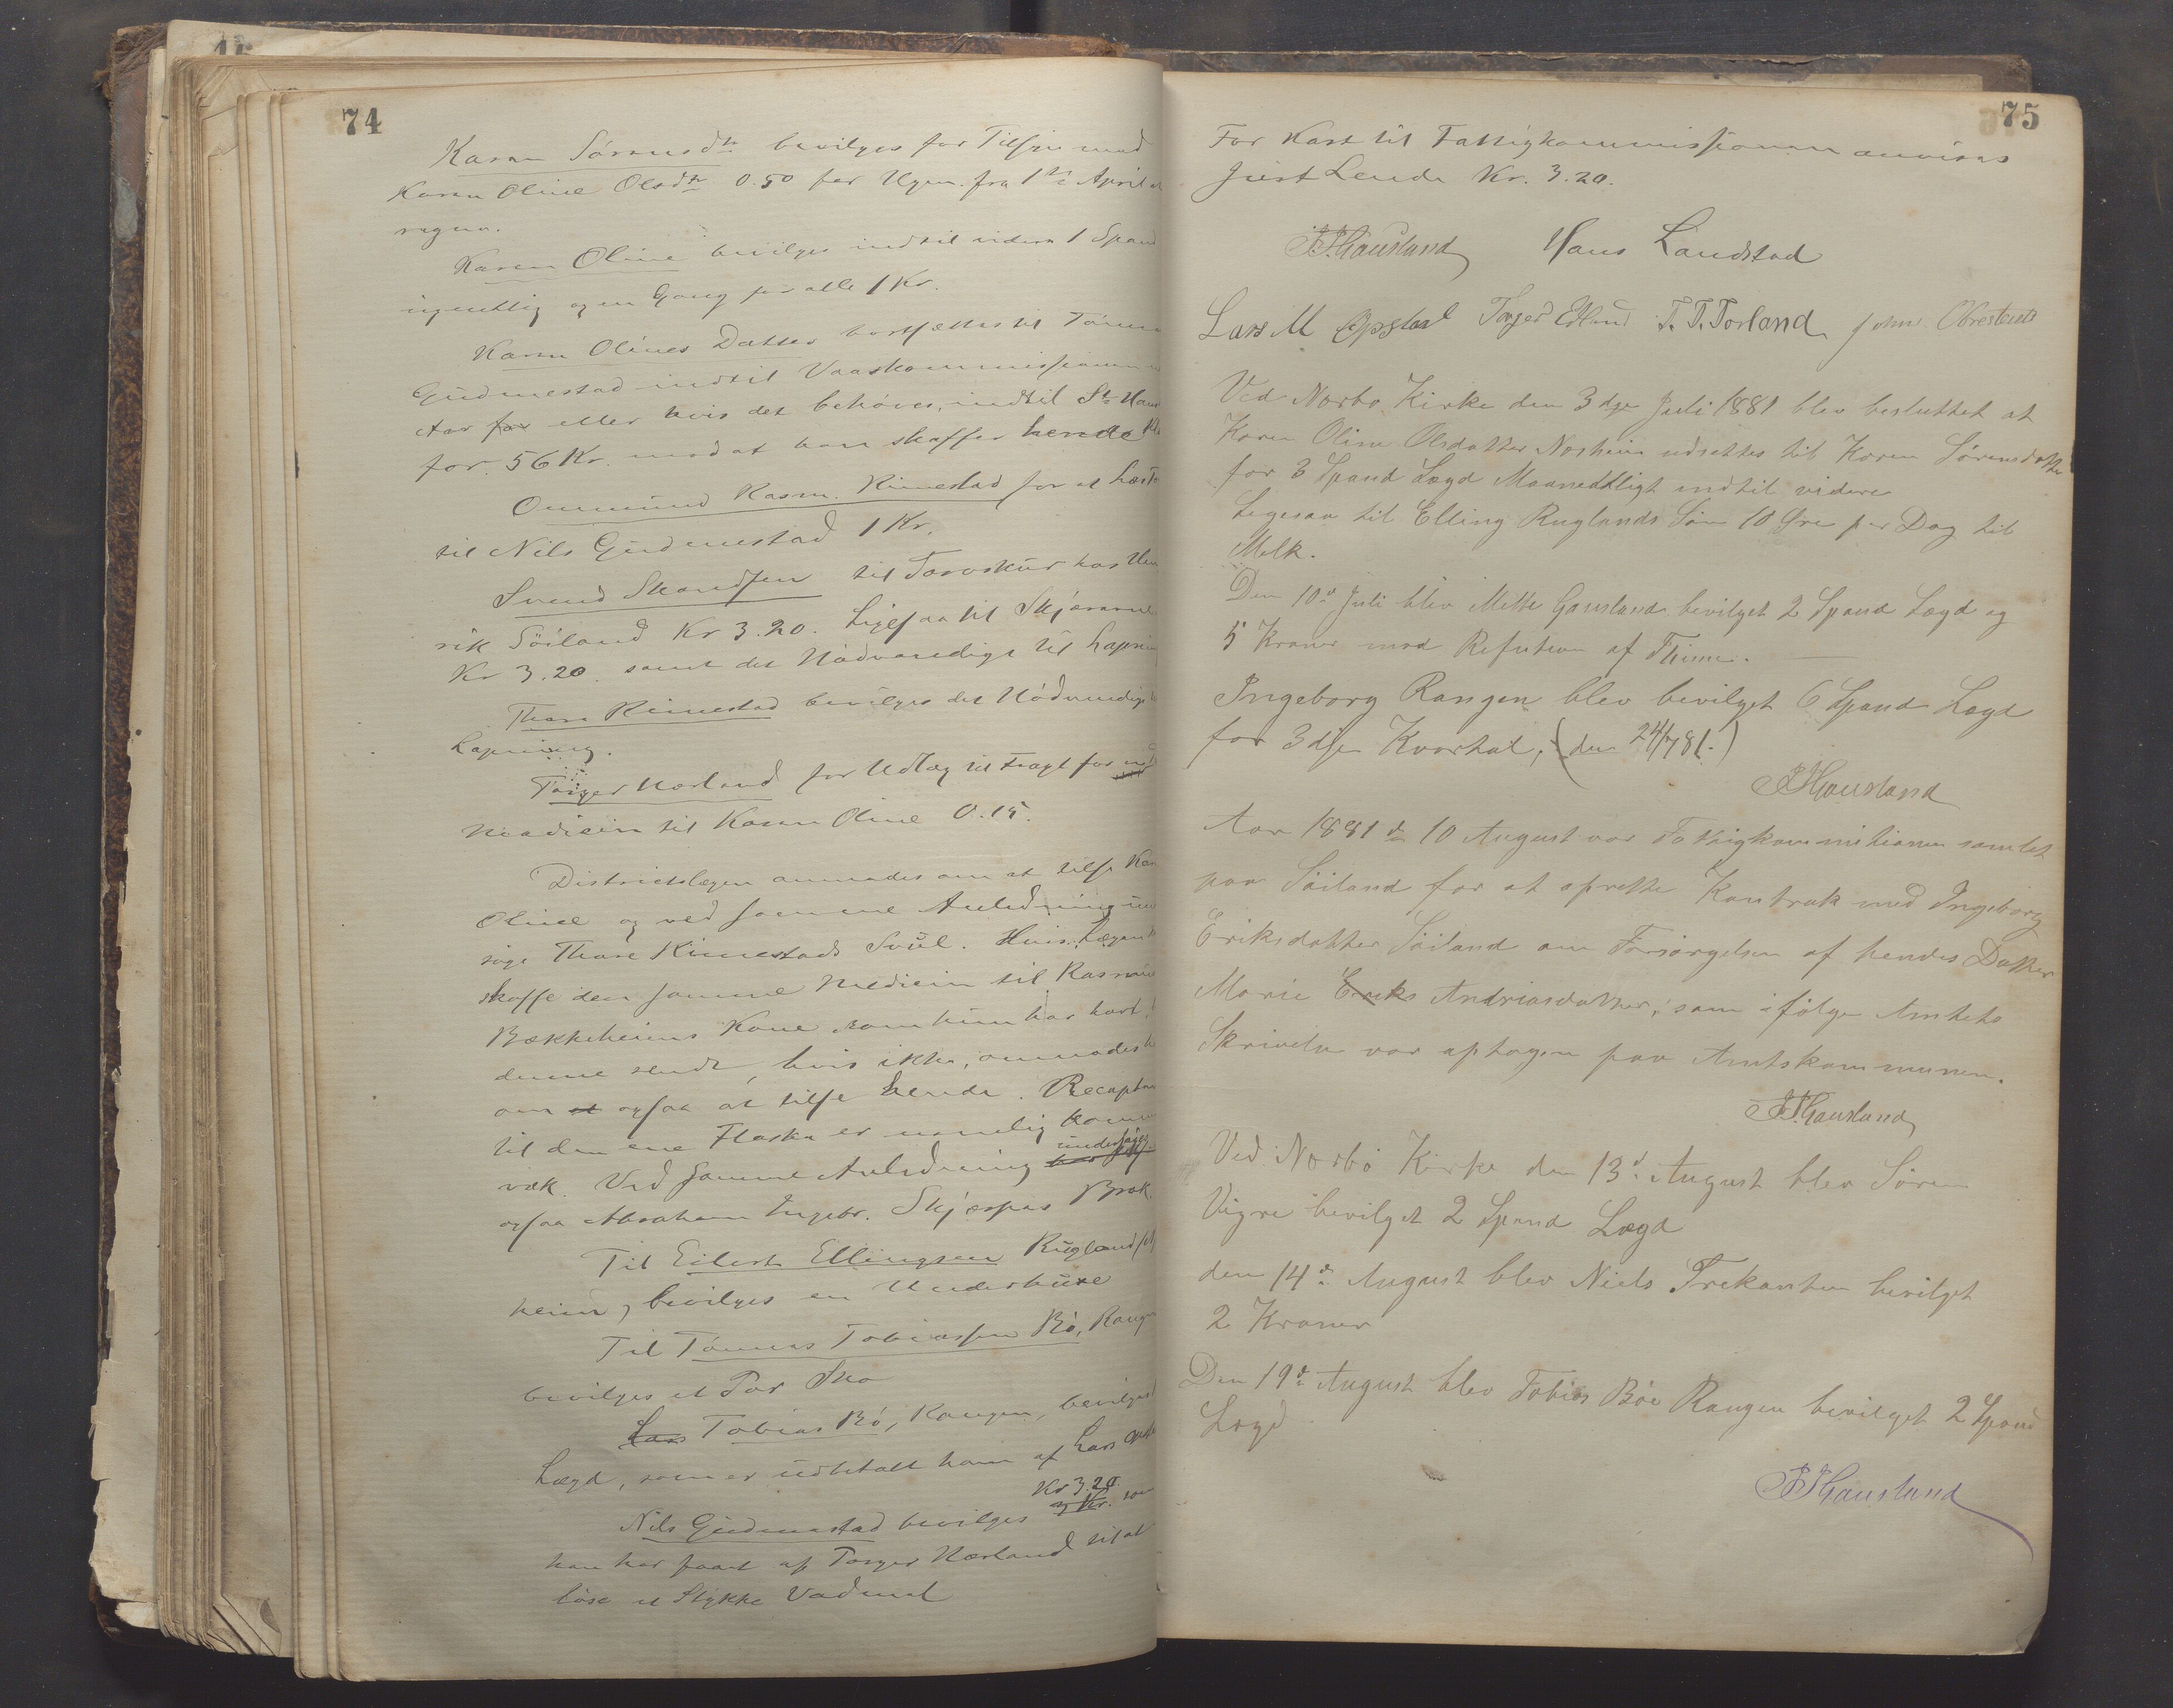 74
Karen Sörensdtr bevilges for Tilsyn med
Karen Oline Olsdtr 0.50 per Ugen fra 1ste April at
regne.
Karen Oline bevilges indtil videre 1 Spand
ugentlig og en Gang for alle 1 Kr.
Karen Olines Datter bortsættes til Tönnes
Gudmestad indtil Vaarkommissionen
Aar for eller hvis det behöves, indtil St. Hans
for 56 Kr. mod at han skaffer hende
Ommund Rasm. Rimestad for at
til Nils Gudmestad 1 Kr.
Svend Skandsen til Töroskur hos
rik Söiland Kr 3.20. Ligesaa til
Kr 3.20 samt det Nödvendige til Lapning
Thore Rimestad bevilges det Nödvendige
Lapning.
Torger Nærland for Udlæg til Fragt for
Medicin til Karen Oline 0.15.
Districtslægen anmodes om at tilse Karen
Oline og ved samme Anledning
söge Thore Rimestads Svül. Hvis Lægen
skaffe den samme Medicin til Rasmus
Bækkeheiens Kone som hun har havt,
denne sendt, hvis ikke, anmodes
om at ogsaa at tilse hende. Recepten
til den ene Flaske er nemlig kommen
væk. Ved samme Anledning undersöges
ogsaa Abraham Ingebr. Skjærpes Brok.
Til Eilert Ellingsen Rugland
heim, bevilges en Underbuxe
Til Tönnes Tobiassen Bö, Rangen
bevilges et Par Sko
Lars Tobias Bö, Rangen, bevilges
Lægd, som er udbetalt ham af Lars
Kr 3.20
Nils Gudmestad bevilges 3 Kr. som
han har faaet af Torger Nærland til at
löse et Stykke Vadmel
75
For Kost til Fattigkommissionen anvises
Juert Lende Kr. 3.20.
Hans Landstad
Lars M Opstad Torger Edland T. T. Torland John Obrestad
Ved Nærbo Kirke den 3dje Juli 1881 blev besluttet at
Karen Oline Olsdatter Nosheim udsettes til Karen Sörensdatter
for 3 Spand Lægd Maanedtligt indtil videre
Ligesaa til Elling Ruglands Sön 10 Øre per Dag til
Melk.
Den 10de Juli blev Mette Gausland bevilget 2 Spand Lægd og
5 Kroner mod Refution af Thime.
Ingeborg Rangen blev bevilget 6 Spand Lægd
for 3dje Kvartal, (den 24/7 81.)
Aar 1881 d 10 August var Fattigkommitionen samlet
paa Söiland for at oprette Kontrak med Ingeborg
Eriksdatter Söiland om Forsörgelsen af hendes Datter
Marie Eriks Andriasdatter, som ifölge Amtets
Skrivelse var optagen paa Amtskommunen.
Ved Nærbö Kirke den 13d August blev Sören
Vigre bevilget 2 Spand Lægd
den 14de August blev Niels Trekanten bevilget
2 Kroner
Den 19de August blev Tobias Böe Rangen bevilget 2 Spand
Lægd